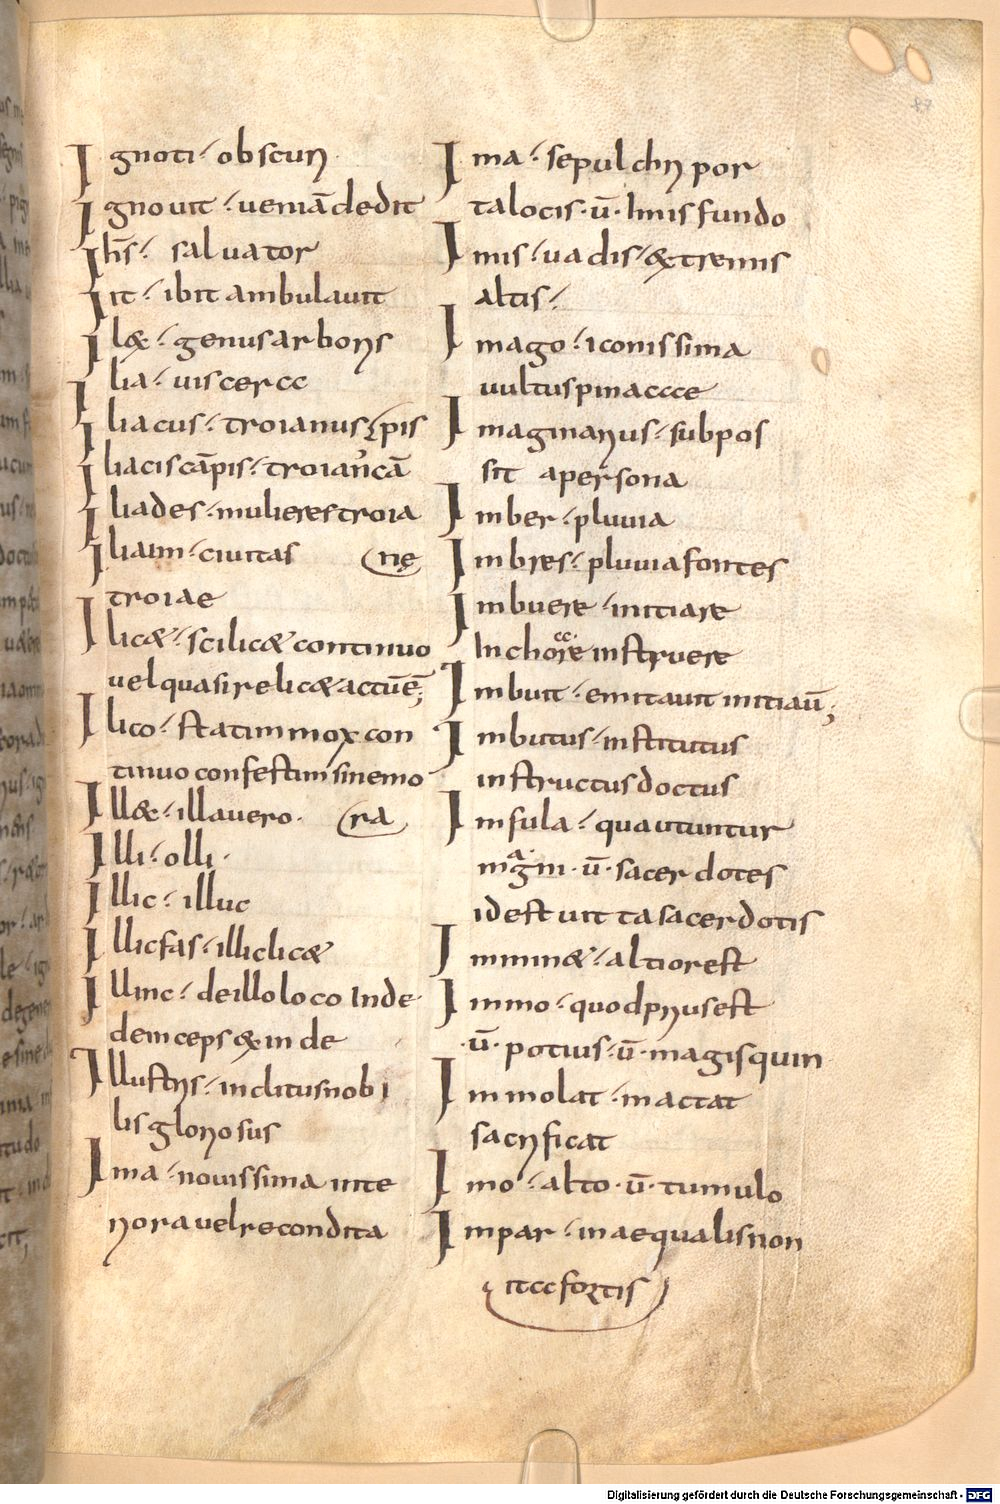 87
Ignoti · obscuri
Ignouit · ueniā dedit
Ihs̄ · saluator
Iit · ibit ambulauit
Ilex · genus arboris
Ilia · uiscera
Iliacus · troianus
Iliacis cāpis · troianis cā pis
Iliades · mulieres troia
Ilium · ciuitas nę
troiae
Ilic& · scilic& continuo
uel quasi relic& actuē;
Ilico · statim mox con
tinuo confestim sine mo
Ill& · illa uero · ra
Illi · olli ·
Illic · illuc
Illicfas · illiclic&
Illinc · de illo loco Inde
deinceps & inde
Illustris · inclitus nobi
lis gloriosus
Ima · nouissima inte
riora uel recondita
Ima · sepulchri por
ta locis · ū · Imis fundo
Imis · uadis · & terminis
altis ·
Imago · iconissima
uultus pinaccce
Imaginarius · subpos
sit a persona
Imber · pluuia
Imbres · pluuia fontes
Imbuere · initiare
Inchoare instruere
Imbuit · emitauit initiaū;
Imbutus · institutus
instructus doctus
Insula · qua utuntur
magni · ū · sacerdotes
id est uitta sacerdotis
Immin& · altior est
Immo · quod prius est
· ū · potius · ū · magis quin
Immolat · mactat
sacrificat
Imo · alto · ū · tumulo
Impar · inaequalis non
ita fortis
Digitalisierung gefördert durch die Deutsche Forschungsgemeinschaft - DFG